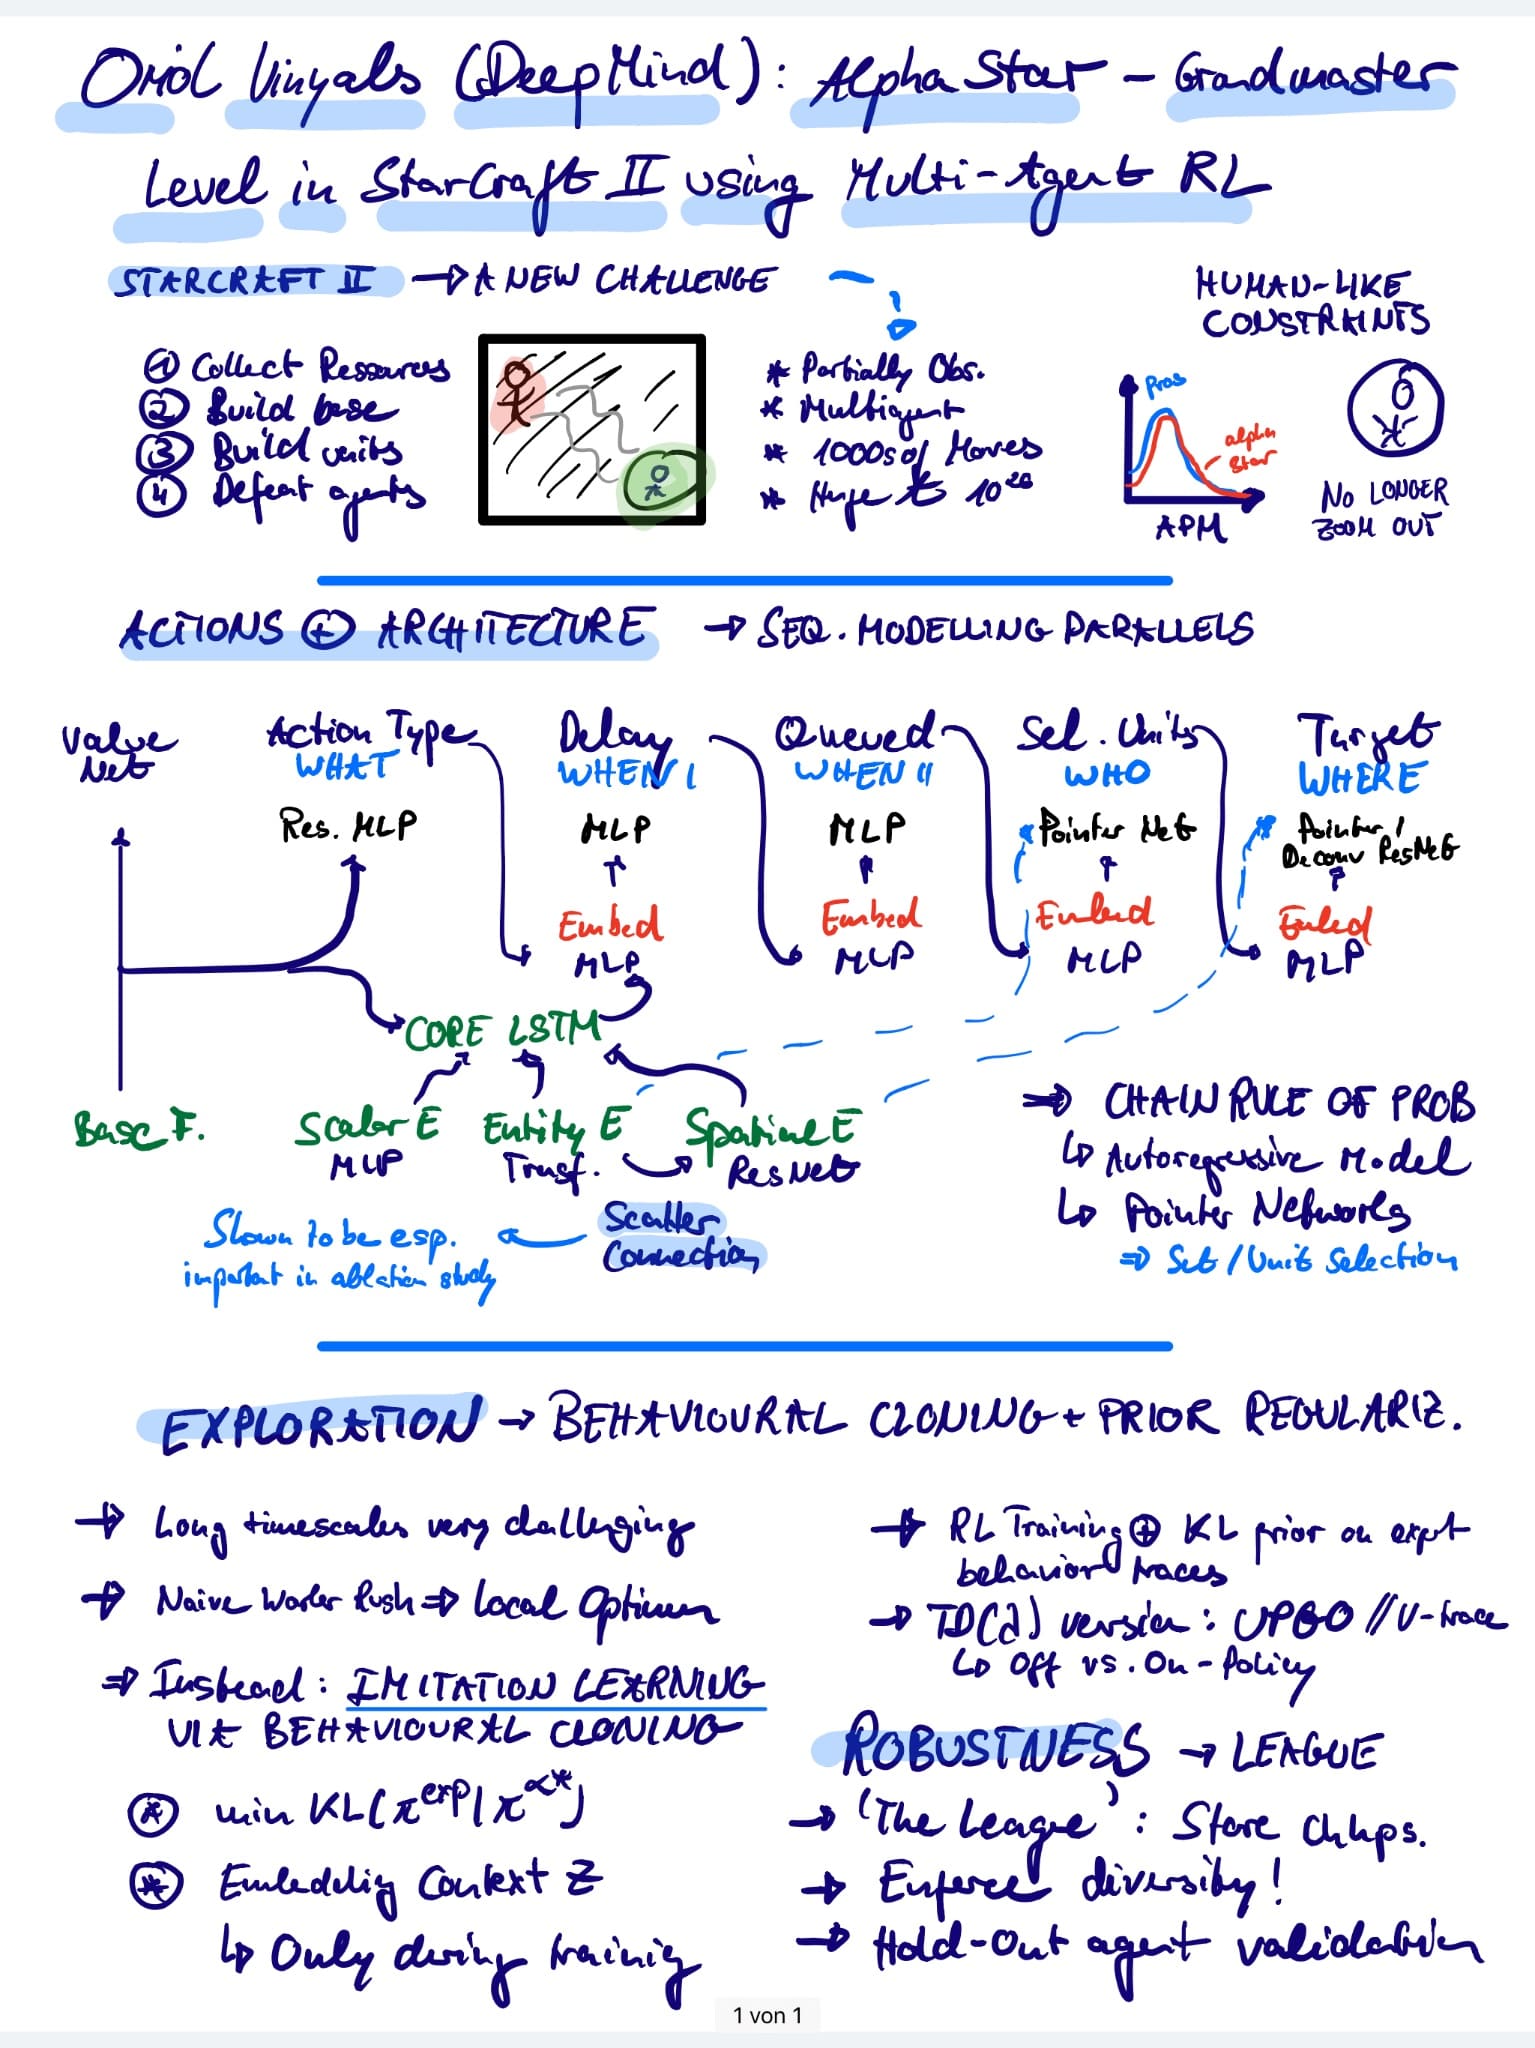 Oriol Vinyals (DeepMind): AlphaStar - Grandmaster
Level in StarCraft II using Multi-Agent RL
STARCRAFT II → A NEW CHALLENGE
HUMAN-LIKE
CONSTRAINTS
① Collect Ressources
② Build base
③ Build units
④ Defeat agents
* Partially Obs.
* Multiagent
* 1000s of Moves
* Huge 10²⁶
Pros
alpha
star
APM
NO LONGER
ZOOM OUT
ACTIONS ⊕ ARCHITECTURE → SEQ. MODELLING PARALLELS
Value
Net
Action Type
WHAT
Res. MLP
Delay
WHEN I
MLP
Embed
MLP
Queued
WHEN II
MLP
Embed
MLP
Sel. Units
WHO
Pointer Net
Embed
MLP
Target
WHERE
Pointer /
Deconv ResNet
Embed
MLP
CORE LSTM
Base F.
Scalar E
MLP
Entity E
Transf.
Spatial E
ResNet
Scatter
Connection
Shown to be esp.
important in ablation study
⇒ CHAIN RULE OF PROB
↳ Autoregressive Model
↳ Pointer Networks
⇒ Set / Unit Selection
EXPLORATION → BEHAVIOURAL CLONING + PRIOR REGULARIZ.
→ Long timescales very challenging
→ Naive Worker Rush ⇒ Local Optimum
⇒ Instead: IMITATION LEARNING
VIA BEHAVIOURAL CLONING
⊛ min KL(π^exp | π^α*)
⊛ Embedding Context Z
↳ Only during training
→ RL Training ⊕ KL prior on expt
behavior traces
→ TD(λ) version: UPGO // V-trace
↳ Off vs. On-Policy
ROBUSTNESS → LEAGUE
→ 'The League': Store Chkps.
→ Enforce diversity!
→ Hold-Out agent validation
1 von 1